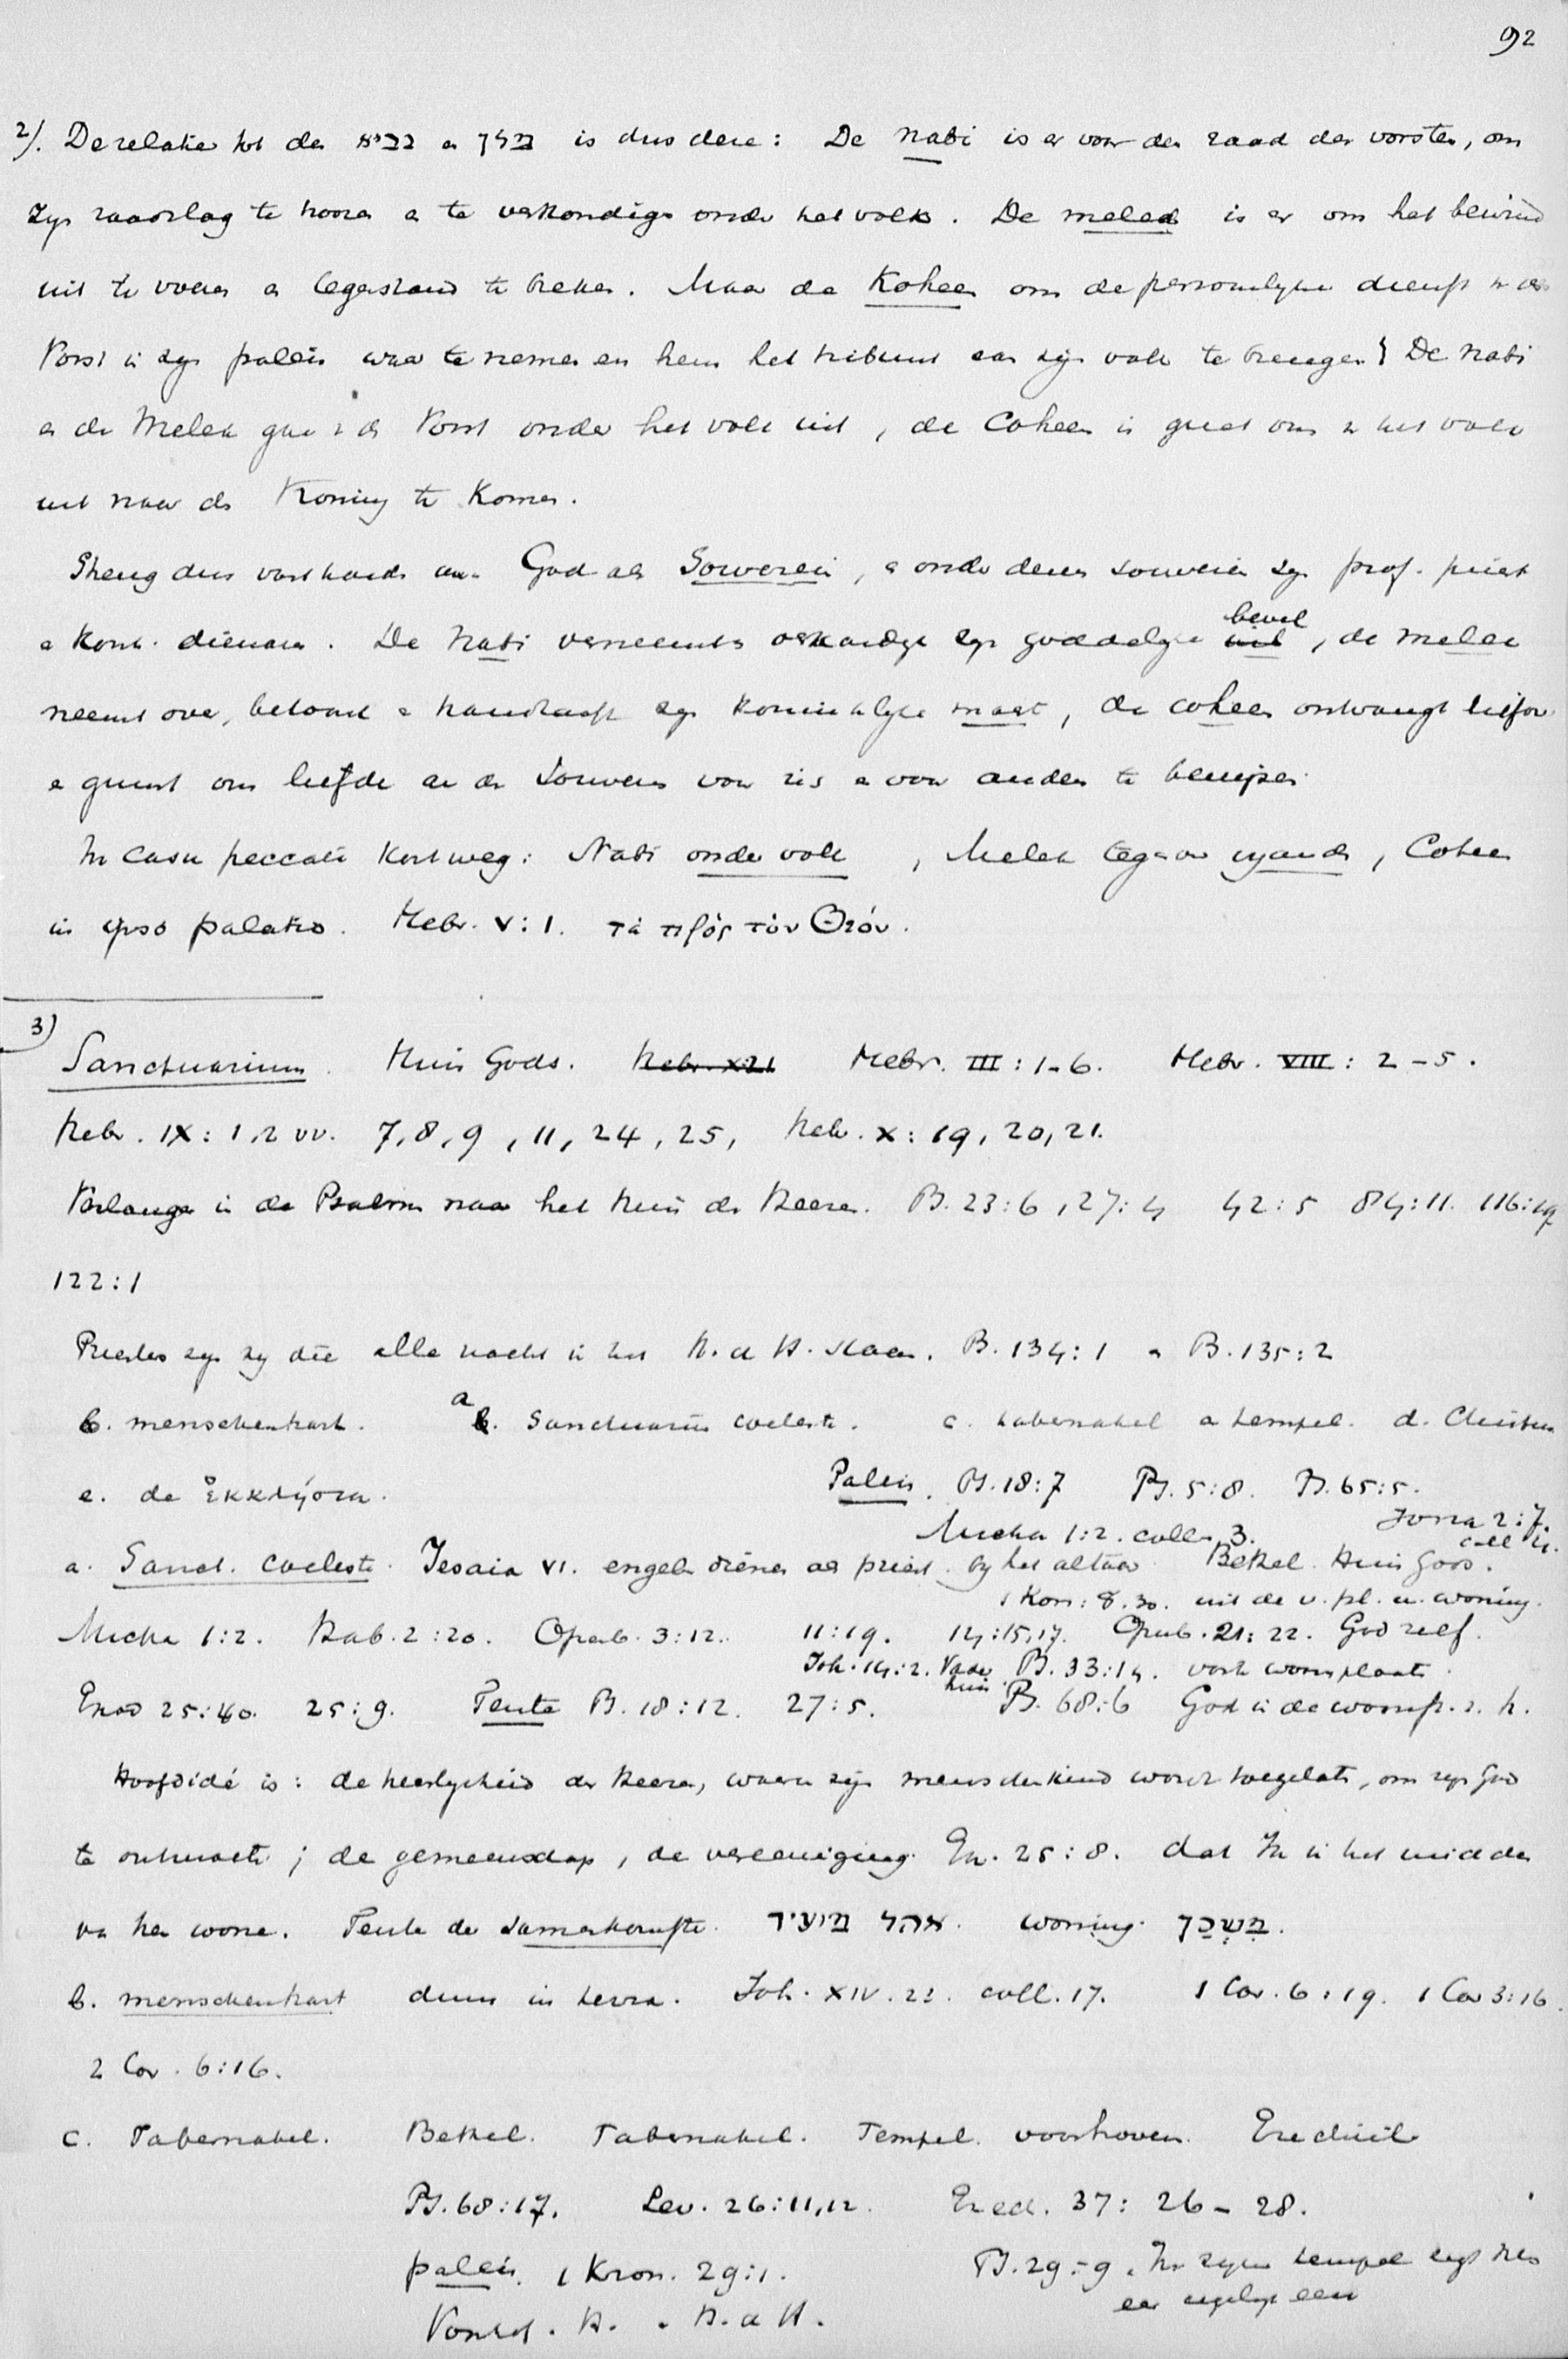 92
2). De relatie tot den נביא en מלך is dus deze: De Nabi is er voor den raad der vorsten, om
zijn raadslag te hooren en te verkondigen onder het volk. De melech is er om het bewind
uit te voeren en tegenstand te breken. Maar de Koheen om de personlyke dienst
Vorst in zyn paleis waar te nemen en hem het tribuut van zijn volk te brengen. De Nabi
en de Melek gaan v. d. Vorst onder het volk uit, de Coheen is gezet om v. het volk
uit naar den Koning te komen.
Streng dus vasthouden aan God als Souverein, en onder dezen souverein zyn prof. priest.
en kon. dienaren. De Nabi verneemt en verkondigt zyn goddelyk bevel, de melek
neemt over, betoont en handhaaft zyn koninklyke macht, de coheen ontvangt liefde
en gunst om liefde aan den Souverein voor zich en voor anderen te bewijzen.
In casu peccati kortweg: Nabi onder volk, Melek tegenover vyanden, Coheen
in ipso palatio. Hebr. V:1. τὰ πρὸς τὸν Θεόν.
3)
Sanctuarium. Huis Gods. Hebr. III: 1-6. Hebr. VIII: 2-5.
Hebr. IX: 1, 2 vv. 7, 8, 9, 11, 24, 25, Hebr. X: 19, 20, 21.
Verlangen in de Psalmen naar het Huis des Heeren. Ps. 23:6, 27:4 42:5 84:11. 116:19
122:1
Priesters zyn zy die alle nacht in het H. d. H. staan. Ps. 134:1 en Ps. 135:2
b. menschenhart. a. Sanctuarium coeleste. c. tabernakel en tempel. d. Christus
e. de ἐκκλησια.
Paleis. Ps. 18:7 Ps. 5:8. Ps. 65:5.
Micha 1:2. coll. 3. Jona 2:7.
a. Sanct. coeleste. Jesaia VI. engelen dienen als priest. by het altaar. Bethel. Huis Gods.
1 Kon: 8.30. uit de v. pl. uw. woning.
Micha 1:2. Hab. 2:20. Openb. 3:12. 11:19. 14:15,17. Openb. 21:22. God zelf.
Joh. 14:2. Vaders huis. Ps. 33:14. vaste woonplaats.
Exod 25:40. 25:9. Tente Ps. 18:12. 27:5. Ps. 68:6 God in de woonst. z. h.
Hoofdidé is: de heerlykheid des Heeren, waarin zijn menschenkind wordt toegelaten, om zyn God
te ontmoeten; de gemeenschap, de vereeniging. Ex. 25:8. dat Ik in het midden
van hen wone. Tente der samenkomste. אהל מועד. woning. משכן.
b. menschenhart dum in terra. Joh. XIV.23. coll. 17. 1 Cor. 6:19. 1 Cor 3:16.
2 Cor. 6:16.
c. Tabernakel. Bethel. Tabernakel. Tempel. voorhoven. Ezechiël
Ps. 68:17. Lev. 26:11,12. Ezech. 37: 26-28.
paleis. 1 Kron. 29:1. Ps. 29:9. In zynen tempel zegt hem
een iegelyk eere
H. d. H.